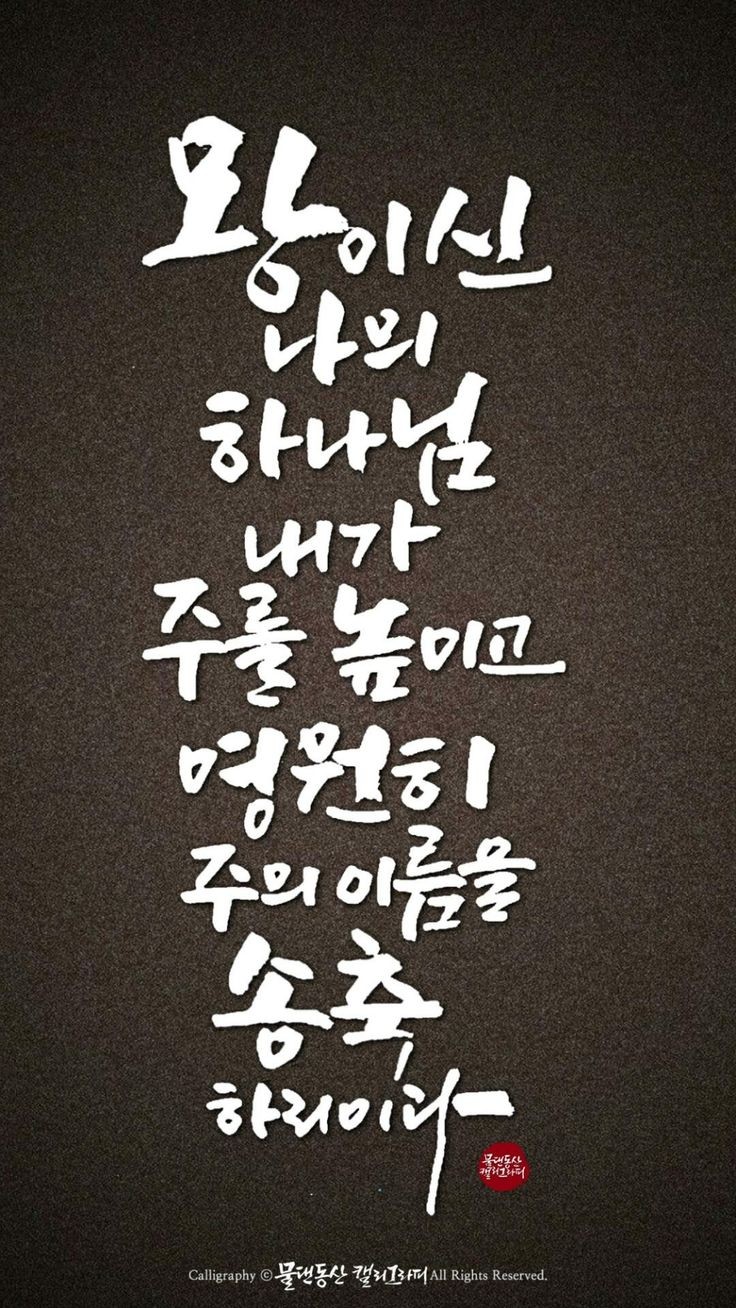 왕이신
나의
하나님
내가
주를 높이고
영원히
주의 이름을
송축
하리이다
물댄동산
캘리그라피
Calligraphy © 물댄동산 캘리그라피 All Rights Reserved.